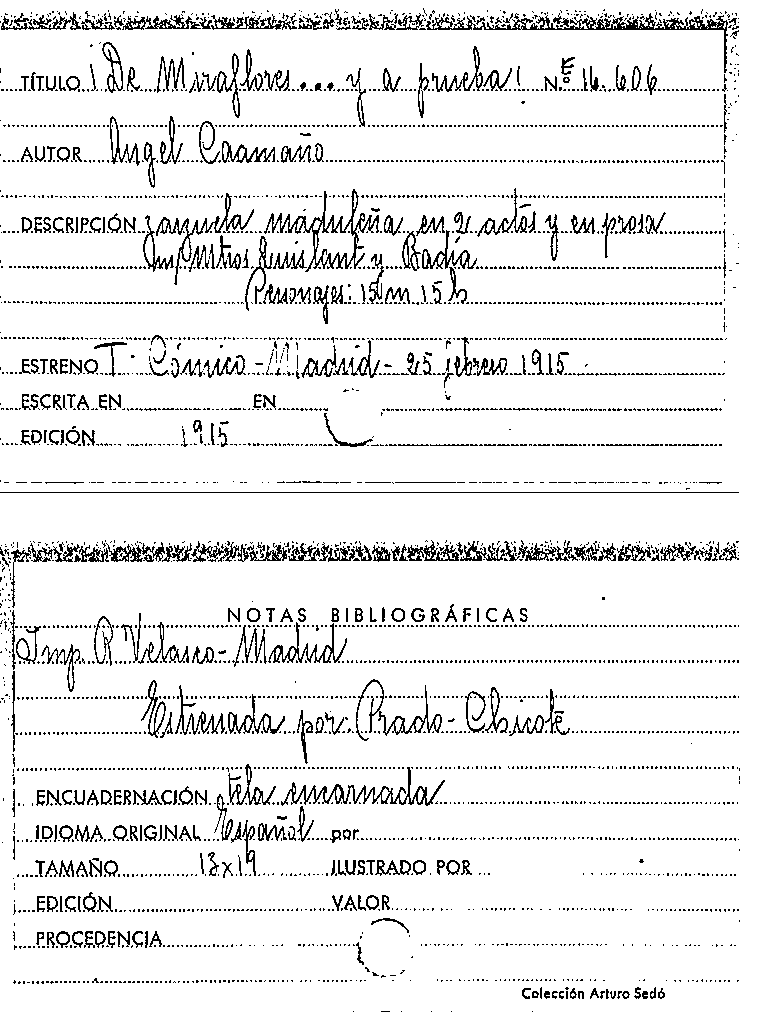 TÍTULO ¡De Miraflores... y a prueba! Nº 16.606
AUTOR Angel Caamaño
DESCRIPCIÓN zarzuela madrileña en 2 actos y en prosa
Mtros Quislant y Badía
(Personajes: 15 m 15 h
ESTRENO T. Cómico - Madrid - 25 febrero 1915
ESCRITA EN EN
EDICIÓN 1915
NOTAS BIBLIOGRÁFICAS
Imp R Velasco - Madrid
Estrenada por: Prado - Chicote
ENCUADERNACIÓN tela encarnada
IDIOMA ORIGINAL Español por
TAMAÑO 13x19 ILUSTRADO POR
EDICIÓN VALOR
PROCEDENCIA
Colección Arturo Sedó